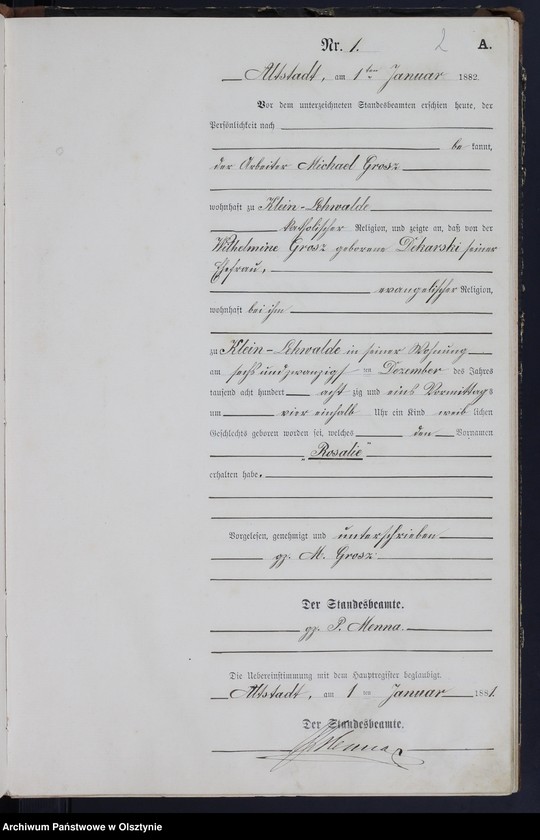 Nr. 1.
2
A.
Altstadt, am 1ten Januar 1882.
Vor dem unterzeichneten Standesbeamten erschien heute, der
Persönlichkeit nach
be kannt,
der Arbeiter Michael Grosz
wohnhaft zu Klein-Lehwalde
katholischer Religion, und zeigte an, daß von der
Wilhelmine Grosz geborene Dekarski seiner
Ehefrau,
evangelischer Religion,
wohnhaft bei ihm
zu Klein-Lehwalde in seiner Wohnung
am sechsundzwanzigsten Dezember des Jahres
tausend acht hundert acht zig und eins Vormittags
um vier einhalb Uhr ein Kind weib lichen
Geschlechts geboren worden sei, welches den Vornamen
„Rosalie“
erhalten habe.
Vorgelesen, genehmigt und unterschrieben
gz. M. Grosz
Der Standesbeamte.
gz. P. Menna.
Die Uebereinstimmung mit dem Hauptregister beglaubigt.
Altstadt, am 1 ten Januar 188
Der Standesbeamte.
Menna
Archiwum Państwowe w Olsztynie